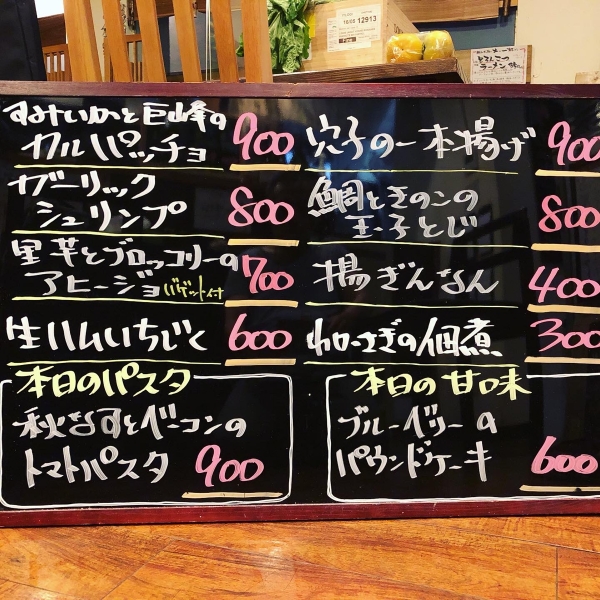 すみいかと巨峰の
カルパッチョ 900
ガーリック
シュリンプ 800
里芋とブロッコリーの
アヒージョ バゲット付 700
生ハムいちじく 600
本日のパスタ
秋なすとベーコンの
トマトパスタ 900
穴子の一本揚げ 900
鯛ときのこの
玉子とじ 800
揚ぎんなん 400
わかさぎの佃煮 300
本日の甘味
ブルーベリーの
パウンドケーキ 600
10/05 12913